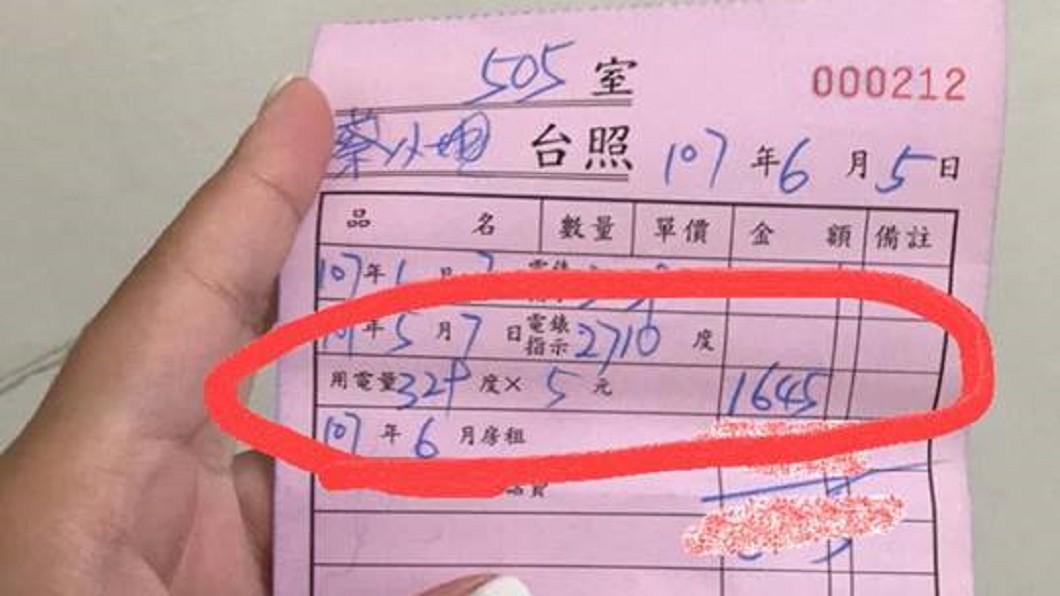 505 室 000212
蔡 台照 107 年 6 月 5 日
品名 數量 單價 金額 備註
107 年
年 5 月 7 日 電錶指示 2710 度
用電量 329 度× 5 元 1645
107 年 6 月房租